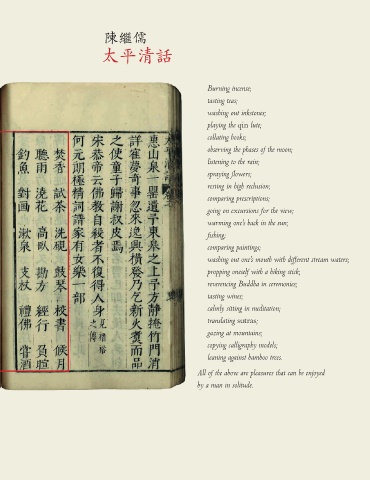 陳繼儒
太平清話
惠山泉一罌遣子東墓之上子方靜掩竹門消
詳寉夢奇事忽來逸興橫發乃乞新火煑而品
之使童子歸謝叔皮焉
宋恭帝云佛教自殺者不復得人身 見褚裕之傳
何元朗極精詞譜家有女樂一部
焚香 試茶 洗硯 鼓琴 校書 候月
聽雨 澆花 高臥 勘方 經行 負暄
釣魚 對画 漱泉 支杖 禮佛 嘗酒
Burning incense;
tasting teas;
washing out inkstones;
playing the qixs lute;
collating books;
observing the phases of the moon;
listening to the rain;
spraying flowers;
resting in high reclusion;
comparing prescriptions;
going on excursions for the view;
warming one's back in the sun;
fishing;
comparing paintings;
washing out one's mouth with different stream waters;
propping oneself with a hiking stick;
reverencing Buddha in ceremonies;
tasting wines;
calmly sitting in meditation;
translating suatras;
gazing at mountains;
copying calligraphy models;
leaning against bamboo trees.
All of the above are pleasures that can be enjoyed
by a man in solitude.